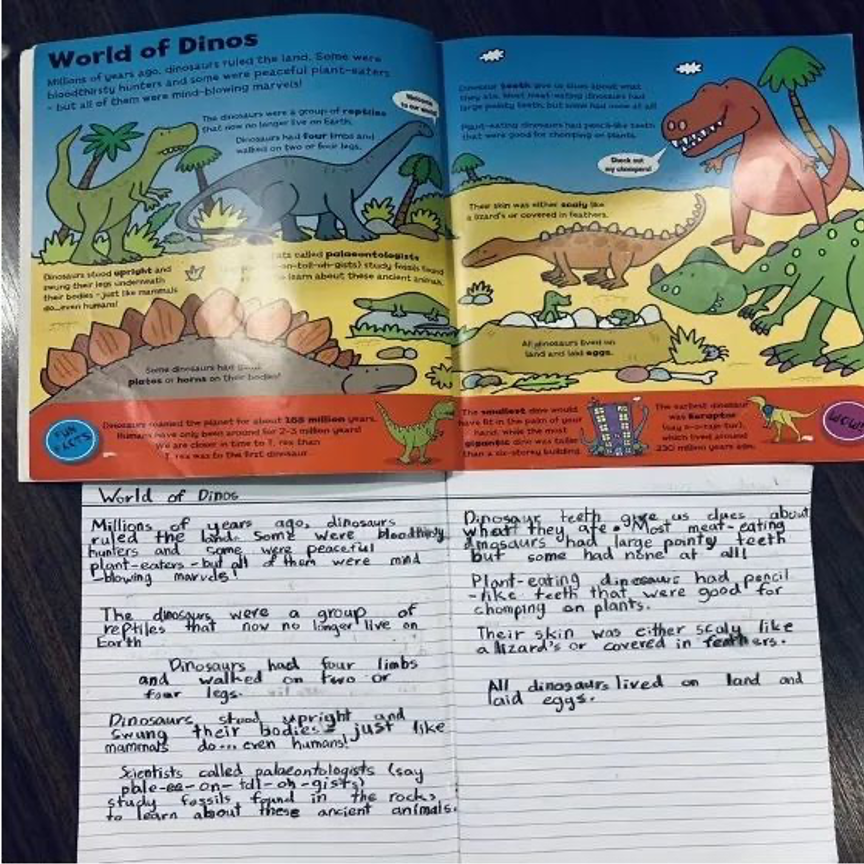 World of Dinos
Millions of years ago, dinosaurs ruled the land. Some were
bloodthirsty hunters and some were peaceful plant-eaters
- but all of them were mind-blowing marvels!
The dinosaurs were a group of reptiles
that now no longer live on Earth.
Welcome
to our world!
Dinosaurs had four limbs and
walked on two or four legs.
Dinosaurs stood upright and
swung their legs underneath
their bodies - just like mammals
do...even humans!
called palaeontologists
-on-toll-oh-gists) study fossils found
learn about these ancient animals.
Some dinosaurs had
plates or horns on their bodies!
FUN
FACTS
Dinosaurs roamed the planet for about 165 million years.
Humans have only been around for 2-3 million years!
We are closer in time to T. rex than
T. rex was to the first dinosaur.
Dinosaur teeth give us clues about what
they ate. Most meat-eating dinosaurs had
large pointy teeth, but some had none at all!
Plant-eating dinosaurs had pencil-like teeth
that were good for chomping on plants.
Check out
my chompers!
Their skin was either scaly like
a lizard's or covered in feathers.
All dinosaurs lived on
land and laid eggs.
The smallest dino would
have fit in the palm of your
hand, while the most
gigantic dino was taller
than a six-storey building.
The earliest dinosaur
was
which lived around
230 million years ago.
WOW!
World of Dinos
Millions of years ago, dinosaurs
ruled the land. Some were bloodthirsty
hunters and some were peaceful
plant-eaters - but all of them were mind
-blowing marvels!
The dinosaurs were a group of
reptiles that now no longer live on
Earth
Dinosaurs had four limbs
and walked on two or
four legs.
Dinosaurs stood upright and
swung their bodies - just like
mammals do... even humans!
Scientists called palaeontologists (say
pale-ee-on-tol-oh-gists)
study fossils found in the rocks
to learn about these ancient animals.
Dinosaur teeth give us clues about
what they ate. Most meat-eating
dinosaurs had large pointy teeth
but some had none at all!
Plant-eating dinosaurs had pencil
-like teeth that were good for
chomping on plants.
Their skin was either scaly like
a lizard's or covered in feathers.
All dinosaurs lived on land and
laid eggs.